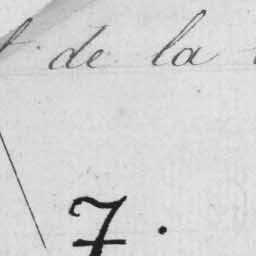 de la
7.